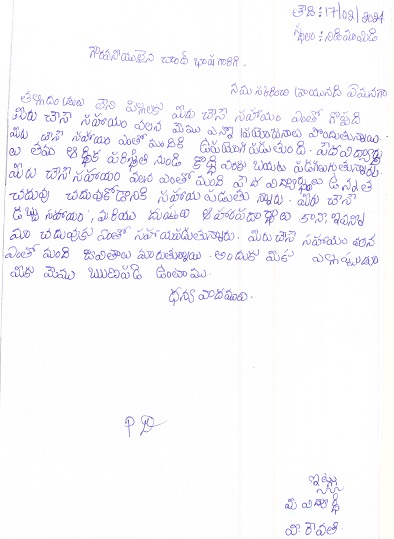 తేది: 17/02/2024
స్థలం: నిడిమామిడి
గౌరవనీయులైన చాంద్ భాష గారికి
తల్లిదండ్రులు లేని పిల్లలకు మీరు చేసే సహాయం ఎంతో గొప్పది
మీరు చేసే సహాయం వలన మేము ఎన్నో ప్రయోజనాలు పొందుతున్నాము.
మీరు చేసే సహాయం ఎంతో మందికి ఉపయోగపడుతుంది. పేదవిద్యార్థు
లు తమ ఆర్థిక పరిస్థితి నుండి కొద్ది వరకు బయట పడగలుగుతున్నారు
మీరు చేసే సహాయం వలన ఎంతో మంది పేద విద్యార్థులు ఉన్నత
చదువు చదువుకోడానికి సహాయ పడుతు న్నారు. మీరు చేసే
డబ్బు సహాయం, మరియు దుస్తులు ఆహారపదార్థాలు కానీ, ఇవన్నీ
మా చదువుకు ఎంతో సహాయపడుతున్నాయి. మీరు చేసే సహాయం వలన
ఎంతో మంది జీవితాలు మారుతున్నాయి. అందుకు మీకు ఎల్లప్పుడూ
మీకు మేము ఋణపడి ఉంటాము.
ధన్యవాదములు.
ఇట్లు
మీ విద్యార్థి
వి. రేవతి